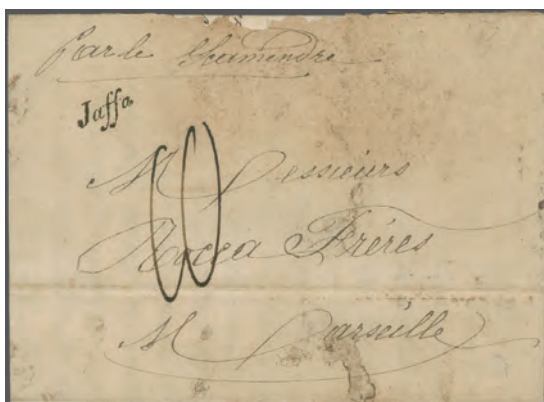 par le Scamandre
Jaffa
Messieurs
Rocca Fréres
Marseille